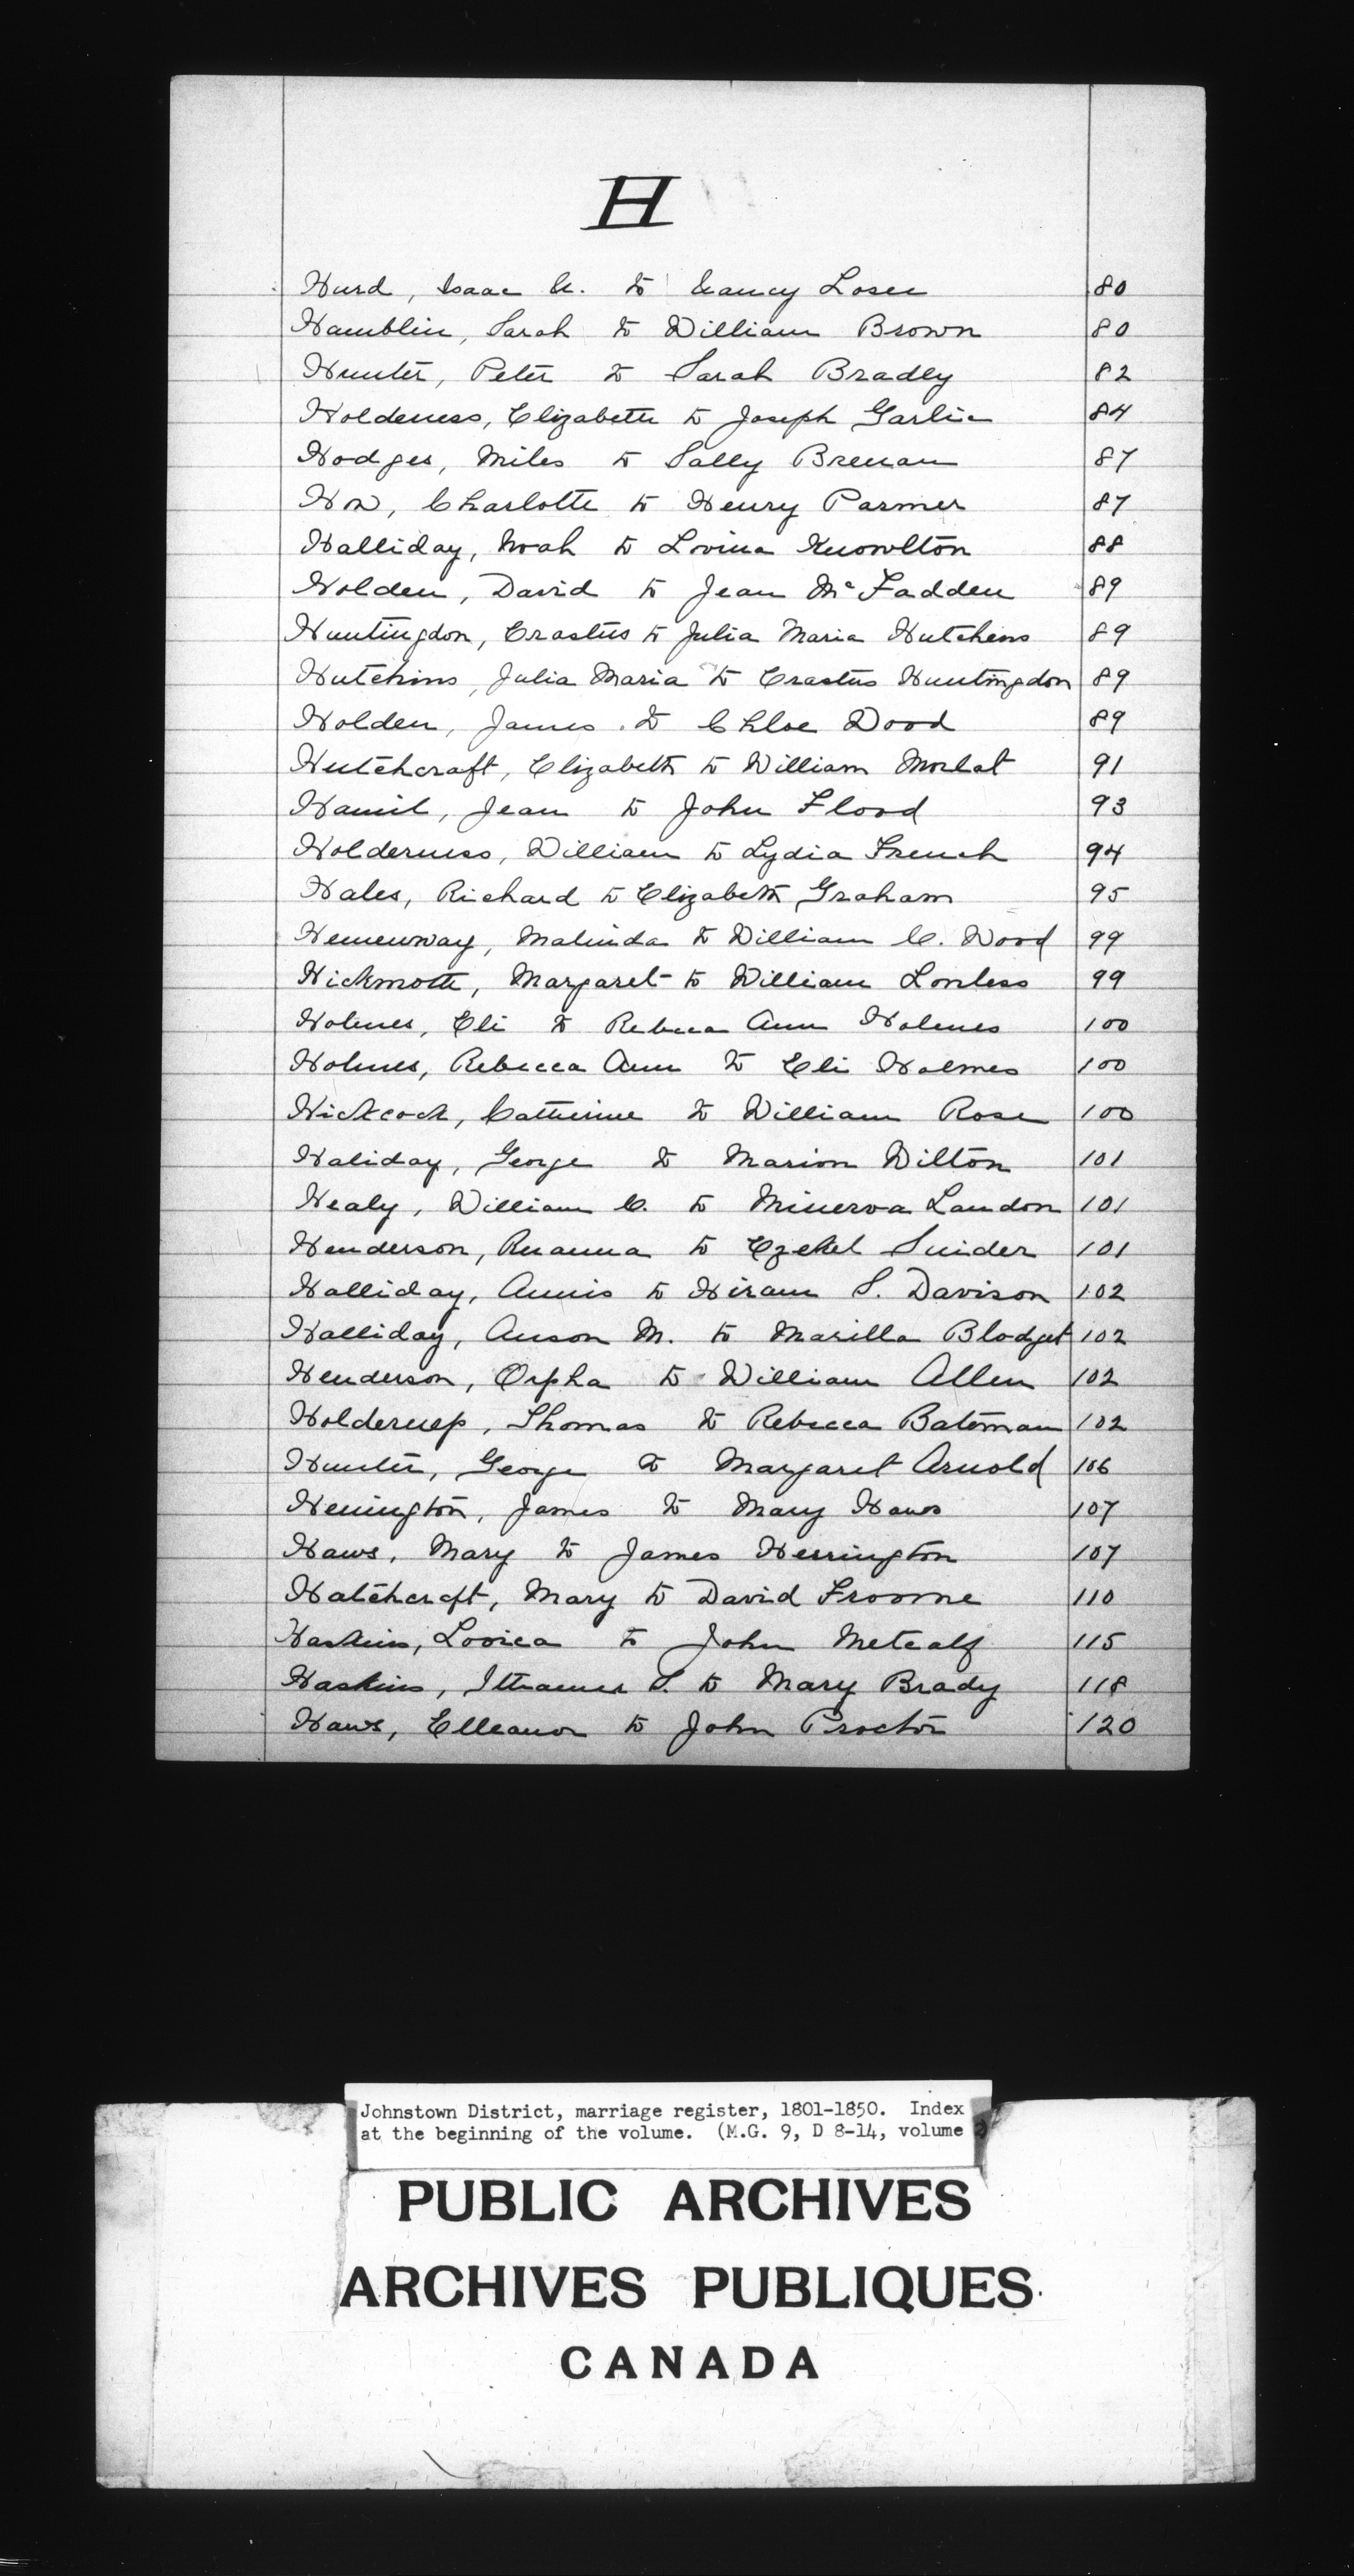 H
Hurd, Isaac N. to Nancy Losee 80
Hamblin, Sarah to William Brown 80
Hunter, Peter to Sarah Bradley 82
Holderness, Elizabeth to Joseph Garlic 84
Hodges, Miles to Sally Brenan 87
How, Charlotte to Henry Parmer 87
Halliday, Noah to Lovina Knowlton 88
Holden, David to Jean McFadden 89
Huntingdon, Erastus to Julia Maria Hutchens 89
Hutchins, Julia Maria to Erastus Huntingdon 89
Holden, James to Chloe Wood 89
Hutchcraft, Elizabeth to William Morlat 91
Hamil, Jean to John Flood 93
Holderness, William to Lydia French 94
Hales, Richard to Elizabeth Graham 95
Hemenway, Malinda to William C. Wood 99
Hickmott, Margaret to William Lovless 99
Holmes, Eli to Rebecca Ann Holmes 100
Holmes, Rebecca Ann to Eli Holmes 100
Hickcock, Catherine to William Rose 100
Haliday, George to Marion Wilton 101
Healy, William C. to Minerva Landon 101
Henderson, Ruanna to Ezekel Snider 101
Halliday, Annis to Hiram S. Davison 102
Halliday, Anson M. to Marilla Blodget 102
Henderson, Orpha to William Allen 102
Holderness, Thomas to Rebecca Bateman 102
Hunter, George to Margaret Arnold 106
Herrington, James to Mary Haws 107
Haws, Mary to James Herrington 107
Hatchcraft, Mary to David Froome 110
Haskins, Lovica to John Metcalf 115
Haskins, Ithamer S. to Mary Brady 118
Haws, Elleanor to John Proctor 120
Johnstown District, marriage register, 1801-1850. Index
at the beginning of the volume. (M.G. 9, D 8-14, volume
PUBLIC ARCHIVES
ARCHIVES PUBLIQUES
CANADA